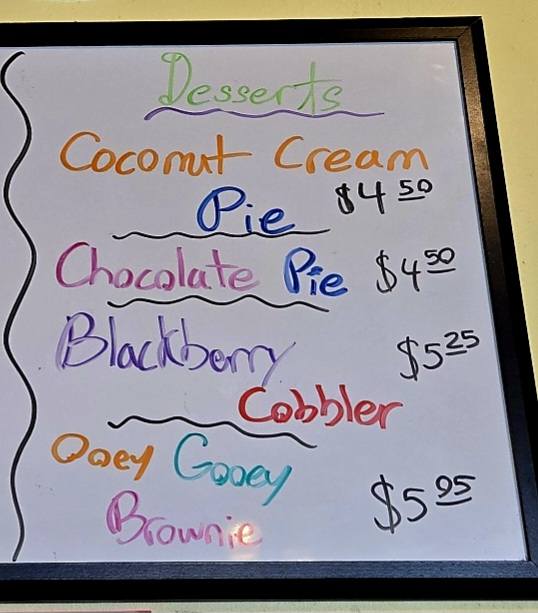 Desserts
Coconut Cream
Pie $4 50
Chocolate Pie $4 50
Blackberry $5 25
Cobbler
Ooey Gooey
Brownie $5 95